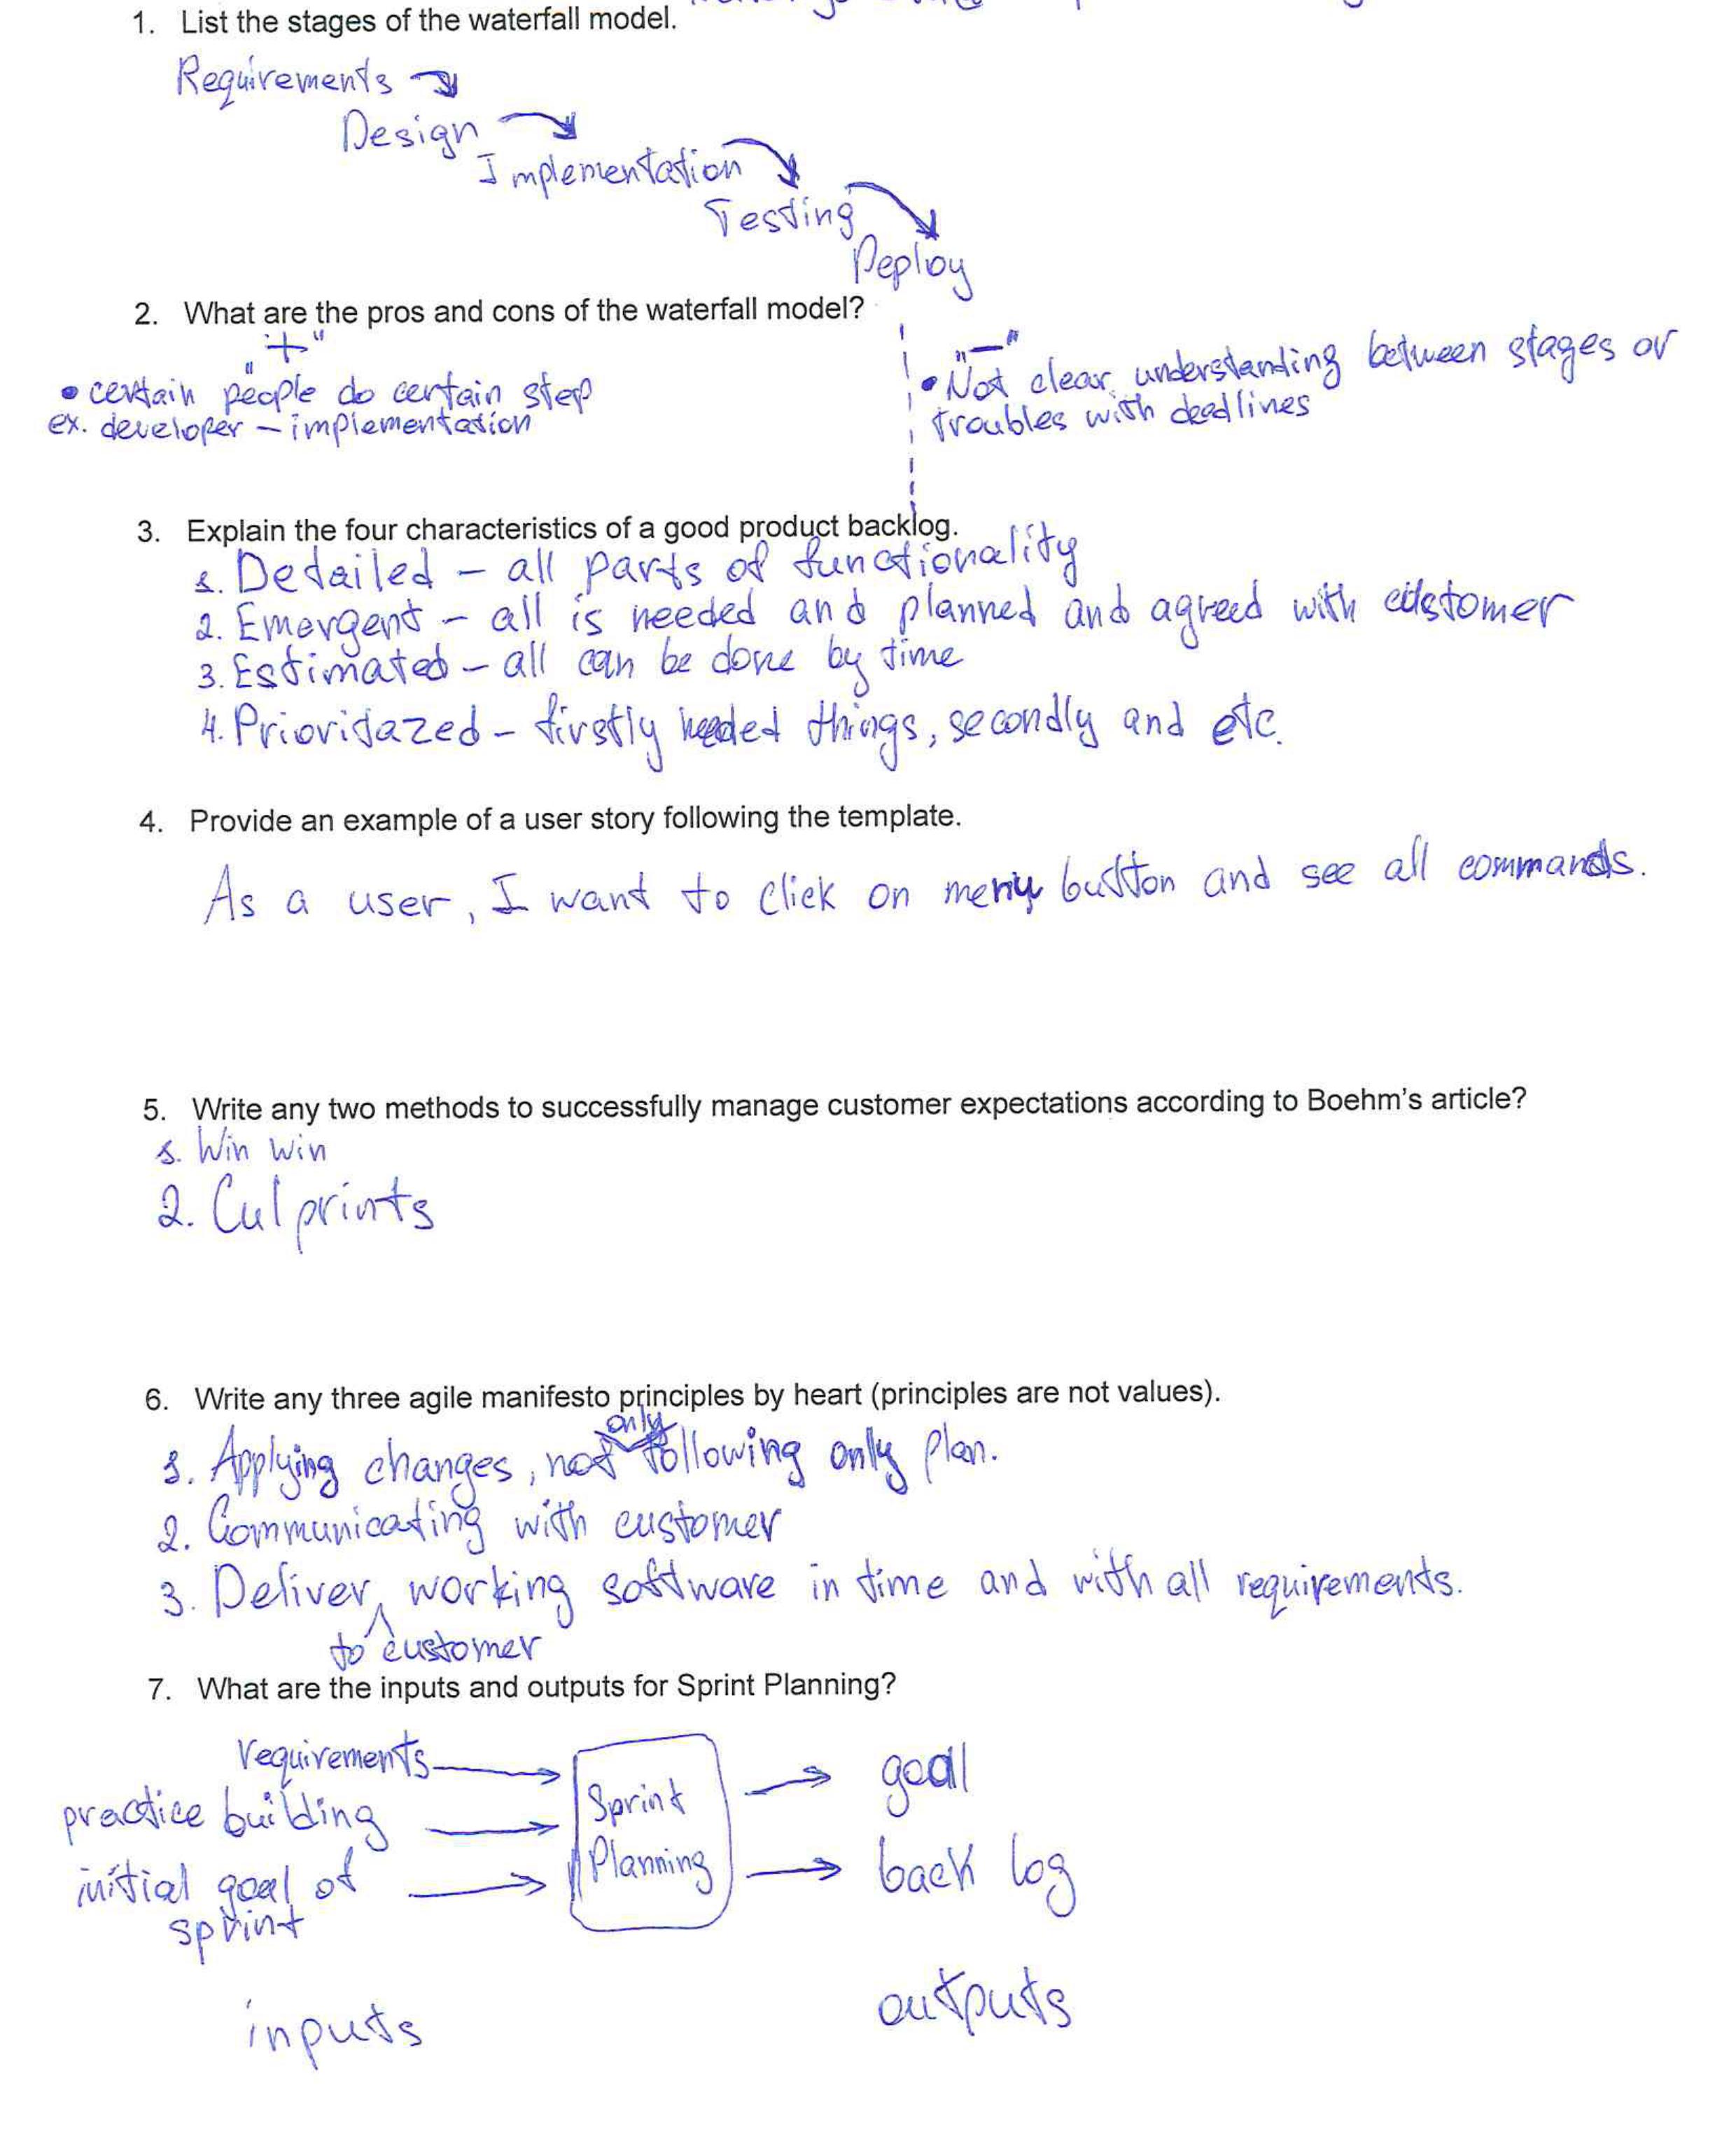 1. List the stages of the waterfall model.
Requirements
Design
Implementation
Testing
Deploy
2. What are the pros and cons of the waterfall model?
"+"
• certain people do certain step
ex. developer – implementation
"–"
• Not clear understanding between stages or
troubles with deadlines
3. Explain the four characteristics of a good product backlog.
1. Detailed – all parts of functionality
2. Emergent – all is needed and planned and agreed with customer
3. Estimated – all can be done by time
4. Prioritazed – firstly needed things, secondly and etc.
4. Provide an example of a user story following the template.
As a user, I want to click on menu button and see all commands.
5. Write any two methods to successfully manage customer expectations according to Boehm's article?
1. Win win
2. Culprints
6. Write any three agile manifesto principles by heart (principles are not values).
only
1. Applying changes, not following only plan.
2. Communicating with customer
3. Deliver working software in time and with all requirements.
to customer
7. What are the inputs and outputs for Sprint Planning?
requirements
practice building
initial goal of
sprint
Sprint
Planning
goal
back log
inputs
outputs